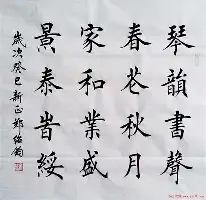 琴韻書聲
春花秋月
家和業盛
景泰時綏
歲次癸巳新正鄭伯鈞